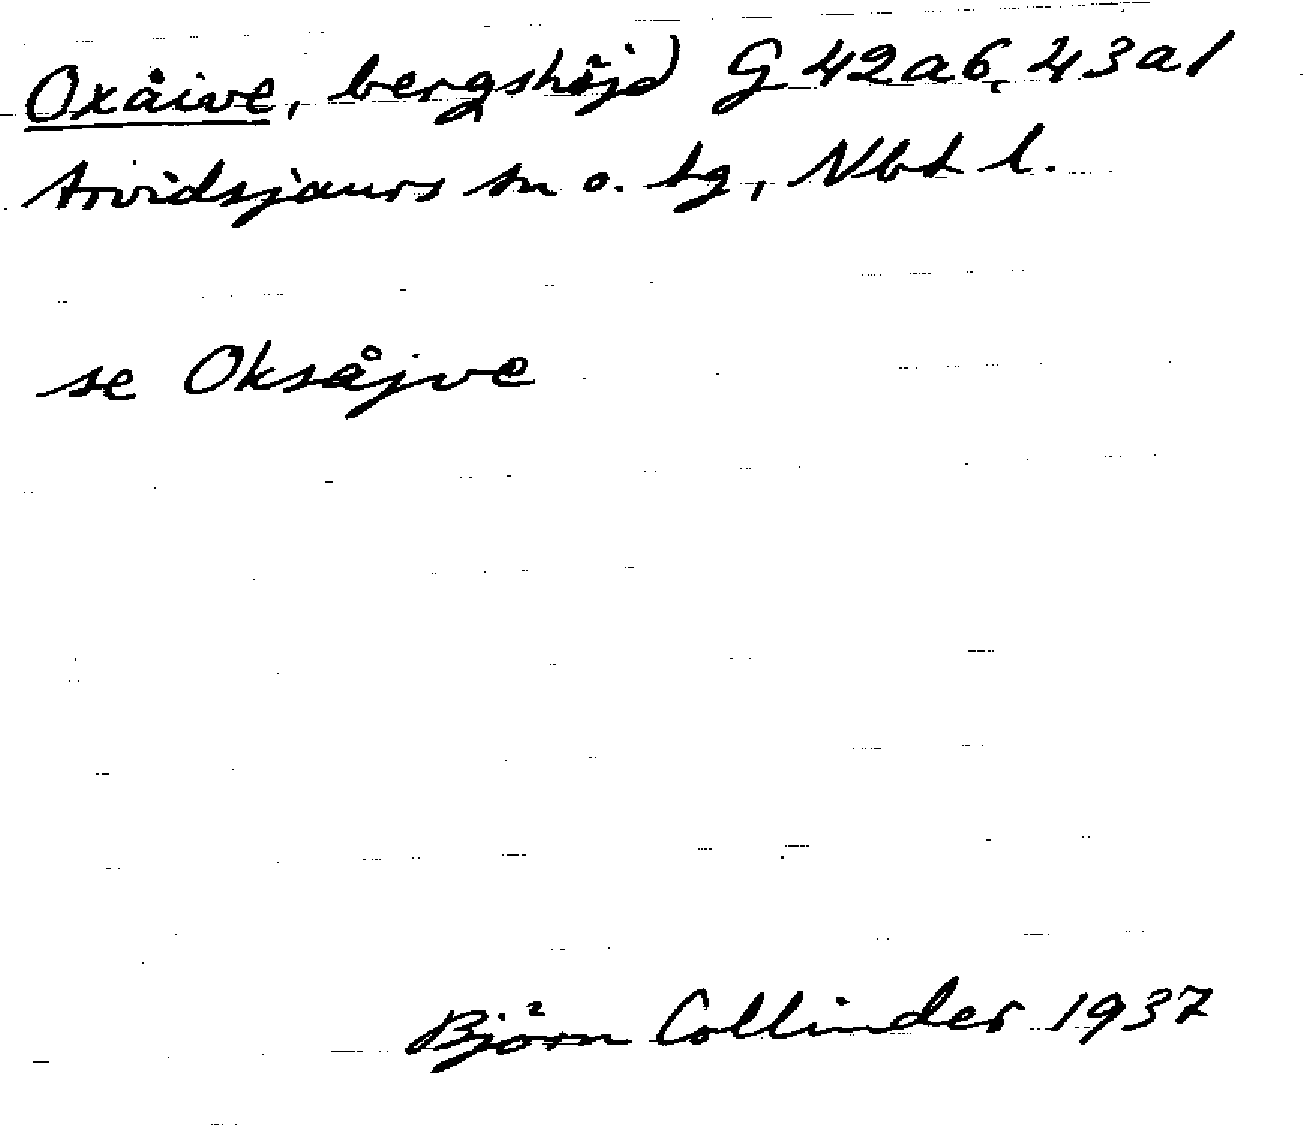 Oxåive, bergshöjd G 42a6, 43a1
Arvidsjaurs sn o. tg, Nbt l.
se Oksåjve
Björn Collinder 1937